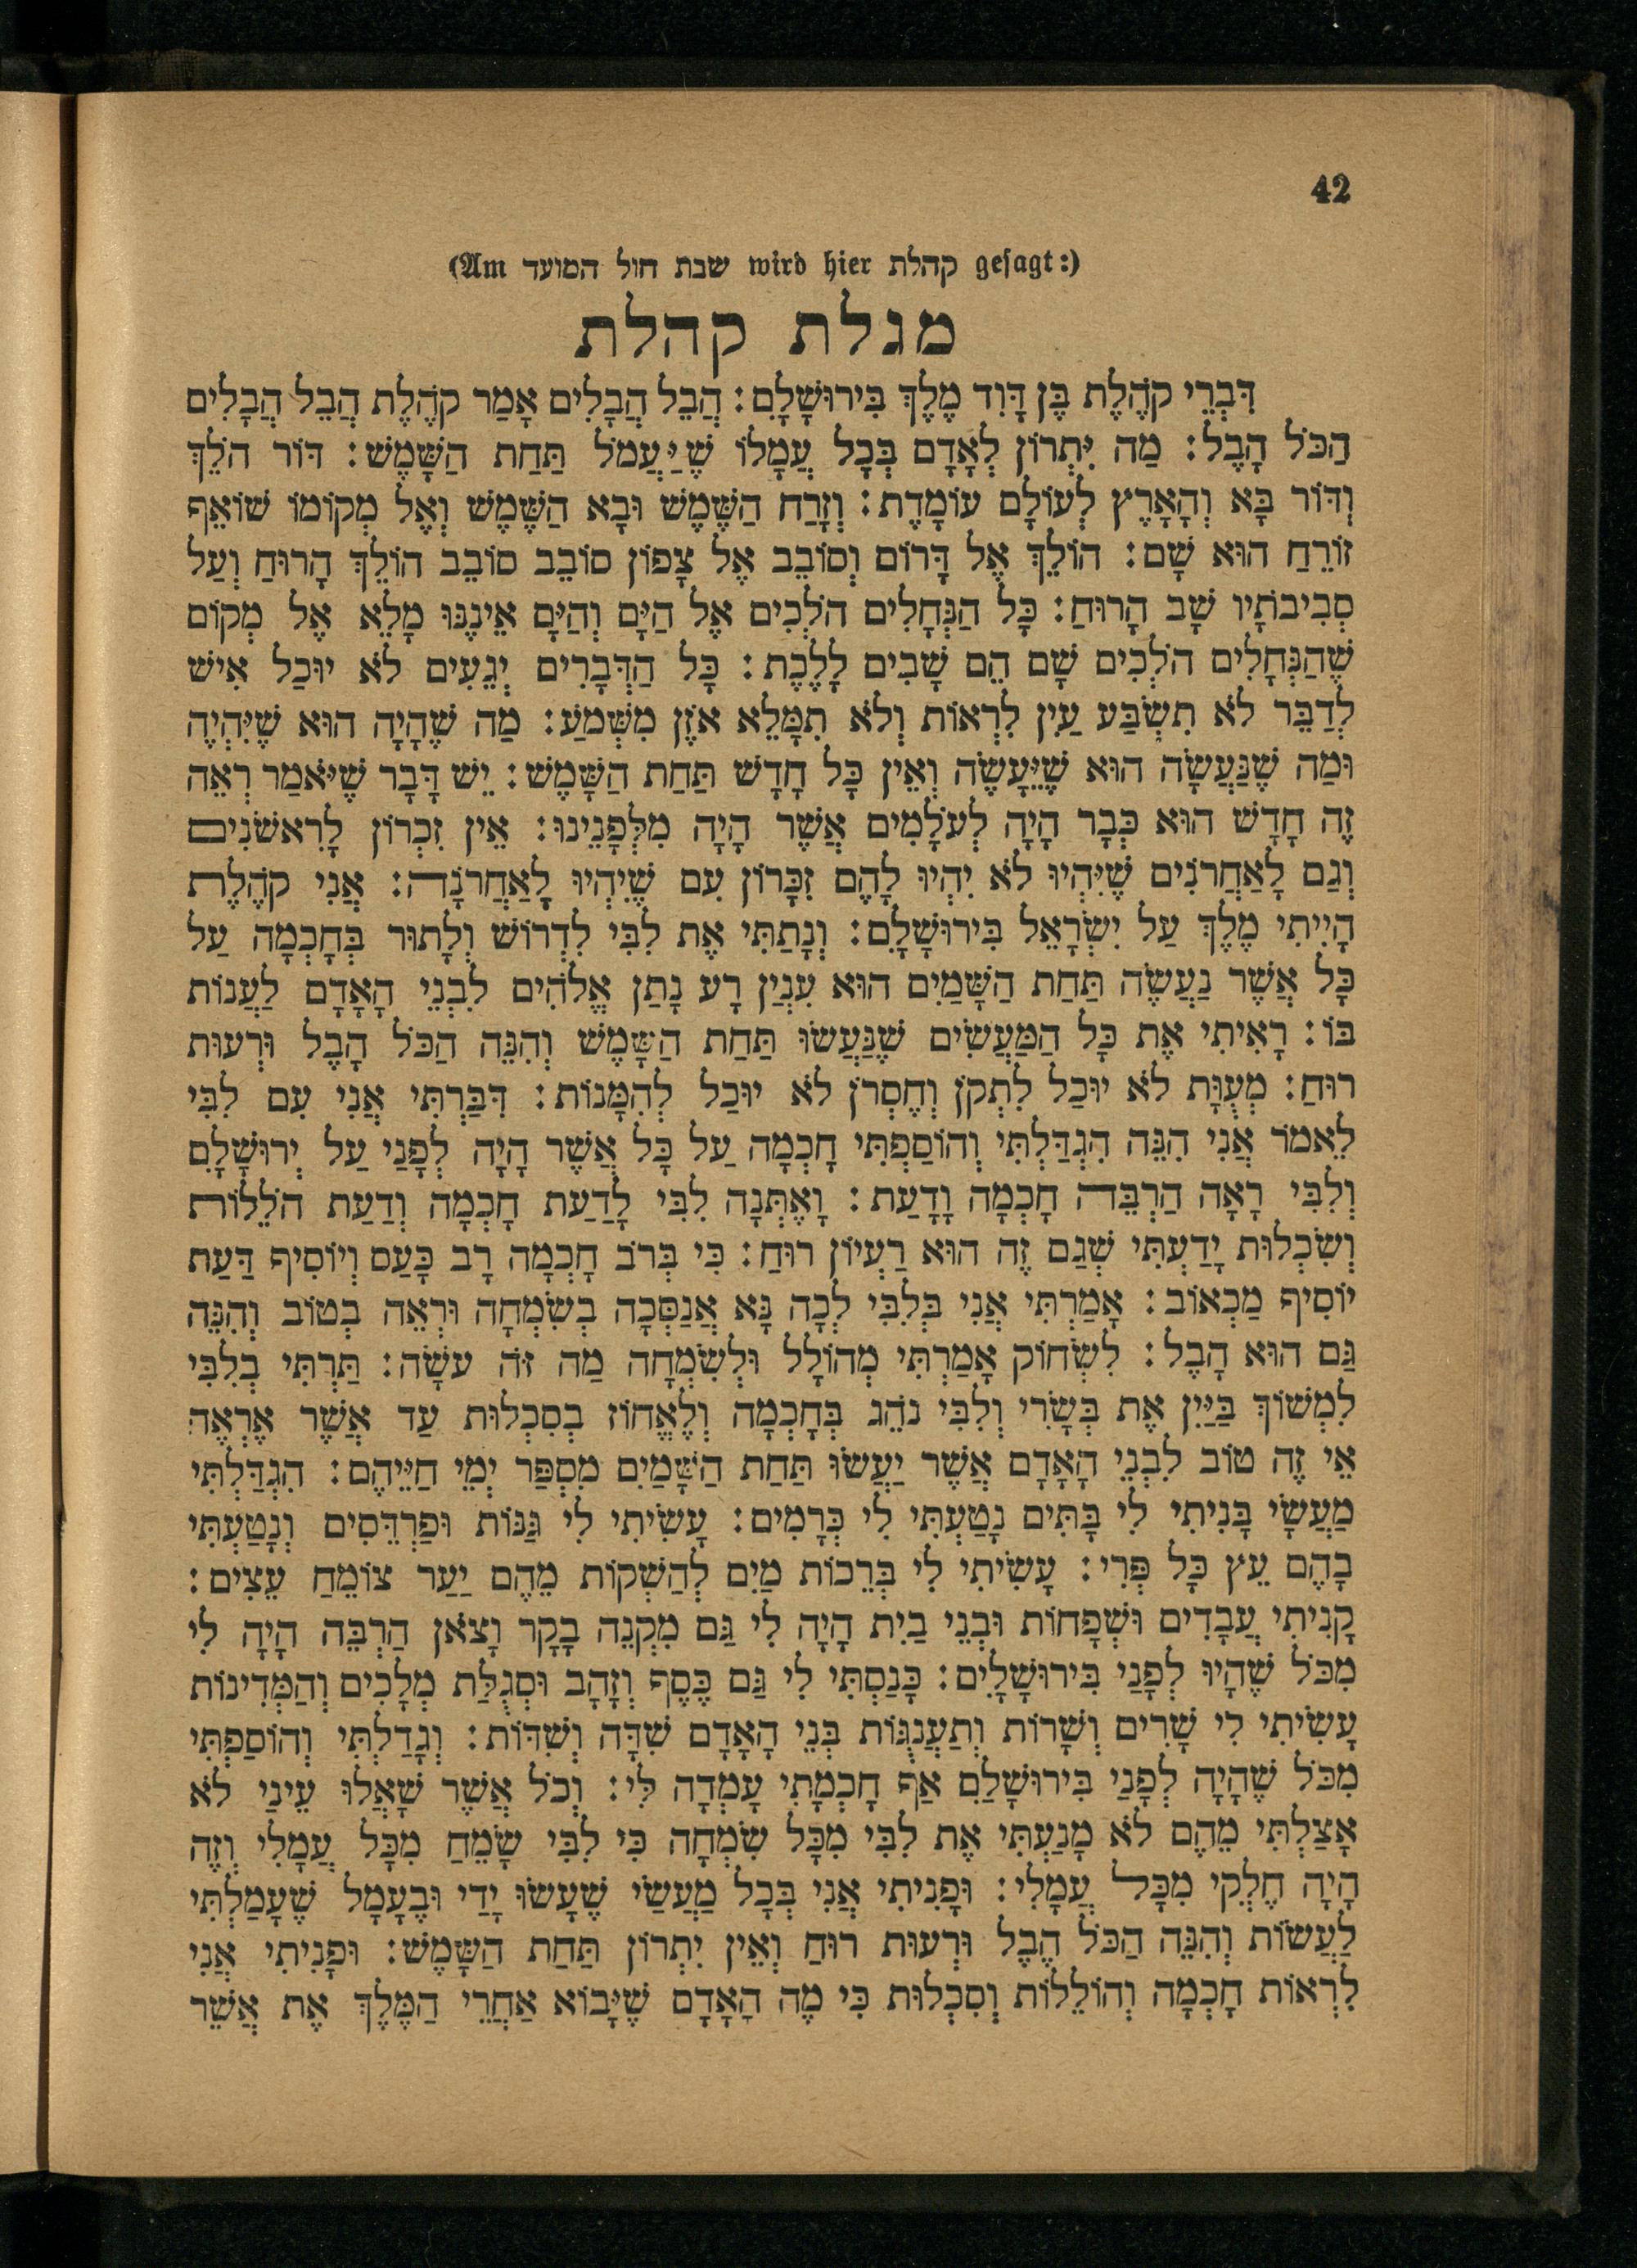 42
(Am שבת חול המועד wird hier קהלת gesagt:)
מגלת קהלת
דִּבְרֵי קֹהֶלֶת בֶּן דָּוִד מֶלֶךְ בִּירוּשָׁלָםִ: הֲבֵל הֲבָלִים אָמַר קֹהֶלֶת הֲבֵל הֲבָלִים
הַכֹּל הָבֶל: מַה יִּתְרוֹן לְאָדָם בְּכָל עֲמָלוֹ שֶׁיַּעֲמֹל תַּחַת הַשָּׁמֶשׁ: דּוֹר הֹלֵךְ
וְדוֹר בָּא וְהָאָרֶץ לְעוֹלָם עוֹמָדֶת: וְזָרַח הַשֶּׁמֶשׁ וּבָא הַשֶּׁמֶשׁ וְאֶל מְקוֹמוֹ שׁוֹאֵף
זוֹרֵחַ הוּא שָׁם: הוֹלֵךְ אֶל דָּרוֹם וְסוֹבֵב אֶל צָפוֹן סוֹבֵב סוֹבֵב הוֹלֵךְ הָרוּחַ וְעַל
סְבִיבֹתָיו שָׁב הָרוּחַ: כָּל הַנְּחָלִים הֹלְכִים אֶל הַיָּם וְהַיָּם אֵינֶנּוּ מָלֵא אֶל מְקוֹם
שֶׁהַנְּחָלִים הֹלְכִים שָׁם הֵם שָׁבִים לָלֶכֶת: כָּל הַדְּבָרִים יְגֵעִים לֹא יוּכַל אִישׁ
לְדַבֵּר לֹא תִשְׂבַּע עַיִן לִרְאוֹת וְלֹא תִמָּלֵא אֹזֶן מִשְּׁמֹעַ: מַה שֶׁהָיָה הוּא שֶׁיִּהְיֶה
וּמַה שֶׁנַּעֲשָׂה הוּא שֶׁיֵּעָשֶׂה וְאֵין כָּל חָדָשׁ תַּחַת הַשָּׁמֶשׁ: יֵשׁ דָּבָר שֶׁיֹּאמַר רְאֵה
זֶה חָדָשׁ הוּא כְּבָר הָיָה לְעֹלָמִים אֲשֶׁר הָיָה מִלְּפָנֵינוּ: אֵין זִכְרוֹן לָרִאשֹׁנִים
וְגַם לָאַחֲרֹנִים שֶׁיִּהְיוּ לֹא יִהְיוּ לָהֶם זִכָּרוֹן עִם שֶׁיִּהְיוּ לָאַחֲרֹנָה: אֲנִי קֹהֶלֶת
הָיִיתִי מֶלֶךְ עַל יִשְׂרָאֵל בִּירוּשָׁלָםִ: וְנָתַתִּי אֶת לִבִּי לִדְרוֹשׁ וְלָתוּר בְּחָכְמָה עַל
כָּל אֲשֶׁר נַעֲשֶׂה תַּחַת הַשָּׁמַיִם הוּא עִנְיַן רָע נָתַן אֱלֹהִים לִבְנֵי הָאָדָם לַעֲנוֹת
בּוֹ: רָאִיתִי אֶת כָּל הַמַּעֲשִׂים שֶׁנַּעֲשׂוּ תַּחַת הַשָּׁמֶשׁ וְהִנֵּה הַכֹּל הָבֶל וּרְעוּת
רוּחַ: מְעֻוָּת לֹא יוּכַל לִתְקֹן וְחֶסְרֹן לֹא יוּכַל לְהִמָּנוֹת: דִּבַּרְתִּי אֲנִי עִם לִבִּי
לֵאמֹר אֲנִי הִנֵּה הִגְדַּלְתִּי וְהוֹסַפְתִּי חָכְמָה עַל כָּל אֲשֶׁר הָיָה לְפָנַי עַל יְרוּשָׁלָםִ
וְלִבִּי רָאָה הַרְבֵּה חָכְמָה וָדָעַת: וָאֶתְּנָה לִבִּי לָדַעַת חָכְמָה וְדַעַת הֹלֵלוֹת
וְשִׂכְלוּת יָדַעְתִּי שֶׁגַּם זֶה הוּא רַעְיוֹן רוּחַ: כִּי בְּרֹב חָכְמָה רָב כָּעַס וְיוֹסִיף דַּעַת
יוֹסִיף מַכְאוֹב: אָמַרְתִּי אֲנִי בְּלִבִּי לְכָה נָּא אֲנַסְּכָה בְשִׂמְחָה וּרְאֵה בְטוֹב וְהִנֵּה
גַּם הוּא הָבֶל: לִשְׂחוֹק אָמַרְתִּי מְהוֹלָל וּלְשִׂמְחָה מַה זֹּה עֹשָׂה: תַּרְתִּי בְלִבִּי
לִמְשׁוֹךְ בַּיַּיִן אֶת בְּשָׂרִי וְלִבִּי נֹהֵג בְּחָכְמָה וְלֶאֱחוֹז בְסִכְלוּת עַד אֲשֶׁר אֶרְאֶה
אֵי זֶה טוֹב לִבְנֵי הָאָדָם אֲשֶׁר יַעֲשׂוּ תַּחַת הַשָּׁמַיִם מִסְפַּר יְמֵי חַיֵּיהֶם: הִגְדַּלְתִּי
מַעֲשָׂי בָּנִיתִי לִי בָּתִּים נָטַעְתִּי לִי כְּרָמִים: עָשִׂיתִי לִי גַּנּוֹת וּפַרְדֵּסִים וְנָטַעְתִּי
בָהֶם עֵץ כָּל פְּרִי: עָשִׂיתִי לִי בְּרֵכוֹת מַיִם לְהַשְׁקוֹת מֵהֶם יַעַר צוֹמֵחַ עֵצִים:
קָנִיתִי עֲבָדִים וּשְׁפָחוֹת וּבְנֵי בַיִת הָיָה לִי גַּם מִקְנֶה בָקָר וָצֹאן הַרְבֵּה הָיָה לִי
מִכֹּל שֶׁהָיוּ לְפָנַי בִּירוּשָׁלָיִם: כָּנַסְתִּי לִי גַּם כֶּסֶף וְזָהָב וּסְגֻלַּת מְלָכִים וְהַמְּדִינוֹת
עָשִׂיתִי לִי שָׁרִים וְשָׁרוֹת וְתַעֲנֻגוֹת בְּנֵי הָאָדָם שִׁדָּה וְשִׁדּוֹת: וְגָדַלְתִּי וְהוֹסַפְתִּי
מִכֹּל שֶׁהָיָה לְפָנַי בִּירוּשָׁלָםִ אַף חָכְמָתִי עָמְדָה לִּי: וְכֹל אֲשֶׁר שָׁאֲלוּ עֵינַי לֹא
אָצַלְתִּי מֵהֶם לֹא מָנַעְתִּי אֶת לִבִּי מִכָּל שִׂמְחָה כִּי לִבִּי שָׂמֵחַ מִכָּל עֲמָלִי וְזֶה
הָיָה חֶלְקִי מִכָּל עֲמָלִי: וּפָנִיתִי אֲנִי בְּכָל מַעֲשַׂי שֶׁעָשׂוּ יָדַי וּבֶעָמָל שֶׁעָמַלְתִּי
לַעֲשׂוֹת וְהִנֵּה הַכֹּל הֶבֶל וּרְעוּת רוּחַ וְאֵין יִתְרוֹן תַּחַת הַשָּׁמֶשׁ: וּפָנִיתִי אֲנִי
לִרְאוֹת חָכְמָה וְהוֹלֵלוֹת וְסִכְלוּת כִּי מֶה הָאָדָם שֶׁיָּבוֹא אַחֲרֵי הַמֶּלֶךְ אֶת אֲשֶׁר